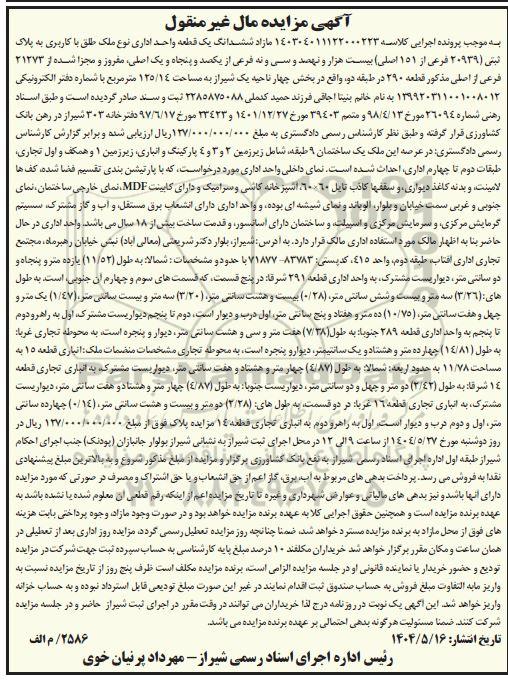 آگهی مزایده مال غیر منقول
به موجب پرونده اجرایی کلاسه ۱۴۰۳۰۴۰۱۱۱۲۲۰۰۰۲۲۳ مازاد ششدانگ یک قطعه واحد اداری نوع ملک طلق با کاربری به پلاک
ثبتی (۲۰۹۳۹ فرعی از ۱۵۱ اصلی) بیست هزار و نهصد و سی و نه فرعی از یکصد و پنجاه و یک اصلی، مفروز و مجزا شده از ۲۱۲۷۳
فرعی از اصلی مذکور قطعه ۲۹۰ در طبقه دو، واقع در بخش چهار ناحیه یک شیراز به مساحت ۱۲۵/۱۴ مترمربع با شماره دفتر الکترونیکی
۱۳۹۹۲۰۳۱۱۰۰۱۰۰۸۰۱۲ به نام خانم بنیتا اجاقی فرزند حمید کدملی ۲۲۸۵۸۷۵۰۸۸ ثبت و سند صادر گردیده است و طبق اسناد
رهنی شماره ۲۶۰۹۴ مورخ ۹۸/۴/۱۳ و متمم ۳۹۴۰۳ مورخ ۱۴۰۱/۱۲/۲۷ و ۲۳۴۲۳ مورخ ۹۷/۶/۱۷ دفترخانه ۳۰۳ شیراز در رهن بانک
کشاورزی قرار گرفته و طبق نظر کارشناس رسمی دادگستری به مبلغ ۱۲۷/۰۰۰/۰۰۰/۰۰۰ریال ارزیابی شده و برابر گزارش کارشناس
رسمی دادگستری: در عرصه این ملک یک ساختمان ۹ طبقه، شامل زیرزمین ۲ و ۳ و ۴ پارکینگ و انباری، زیرزمین ۱ و همکف و اول تجاری،
طبقات دوم تا چهارم اداری، احداث شده است. نمای داخلی واحد اداری مورد درخواست، که با پارتیشن بندی تقسیم فضا شده، کف ها
لامینت، و بدنه کاغذ دیواری، و سقفها کاذب تایل ۶۰×۶۰، آشپزخانه کاشی و سرامیک و دارای کابینت MDF، نمای خارجی ساختمان، نمای
جنوبی و غربی سمت خیابان و بلوار، آلوباند و نمای شیشه ای بوده، و واحد اداری دارای انشعاب برق مستقل، و آب و گاز مشترک، سیستم
گرمایش مرکزی، و سرمایش مرکزی و اسپیلت، و ساختمان دارای آسانسور، و قدمت ساخت بیش از ۱۸ سال می باشد. واحد اداری در حال
حاضر بنا به اظهار مالک مورد استفاده اداری مالک قرار دارد. به آدرس: شیراز، بلوار دکتر شریعتی (معالی آباد) نبش خیابان رهبرماه، مجتمع
تجاری اداری آفتاب، طبقه دوم، واحد ۴۱۵، کدپستی: ۸۳۷۸۳-۷۱۸۷۷ با حدود و مشخصات : شمالا: به طول (۱۱/۵۲) یازده متر و پنجاه و
دو سانتی متر، دیواریست مشترک، به واحد اداری قطعه ۲۹۱ شرقا: در پنج قسمت، که قسمت های سوم و چهارم آن جنوبی است. به طول
های: (۳/۲۶) سه متر و بیست و شش سانتی متر، (۰/۲۸) بیست و هشت سانتی متر، (۳/۲۰) سه متر و بیست سانتی متر، (۱/۴۷) یک متر و
چهل و هفت سانتی متر، (۱۰/۷۵) ده متر و هفتاد و پنج سانتی متر، اول درب و دیوار است، دوم تا پنجم دیواریست مشترک، اول به راهرو دوم
تا پنجم به واحد اداری قطعه ۲۸۹ جنوبا: به طول (۷/۳۸) هفت متر و سی و هشت سانتی متر، دیوار و پنجره است، به محوطه تجاری غربا:
به طول (۱۴/۸۱) چهارده متر و هشتاد و یک سانتیمتر، دیوار و پنجره است، به محوطه تجاری مشخصات منضمات ملک: انباری قطعه ۱۵ به
مساحت ۱۱/۷۸ به حدود اربعه: شمالا: به طول (۴/۸۷) چهار متر و هشتاد و هفت سانتی متر، دیواریست مشترک، به انباری تجاری قطعه
۱۴ شرقا: به طول (۲/۴۲) دو متر و چهل و دو سانتی متر، دیواریست جنوبا: به طول (۴/۸۷) چهار متر و هشتاد و هفت سانتی متر، دیواریست
مشترک، به انباری تجاری قطعه ۱۶ غربا: در دو قسمت، به طول های: (۲/۲۸) دو متر و بیست و هشت سانتی متر، (۰/۱۴) چهارده سانتی
متر، اول و دوم درب و دیوار است، اول به راهرو دوم به انباری تجاری قطعه ۱۴ مزایده پلاک فوق از مبلغ ۱۲۷/۰۰۰/۰۰۰/۰۰۰ ریال در
روز دوشنبه مورخ ۱۴۰۴/۵/۲۷ از ساعت ۹ الی ۱۲ در محل اجرای ثبت شیراز به نشانی شیراز بولوار جانبازان (پودنک) جنب اجرای احکام
شیراز طبقه اول اداره اجرای اسناد رسمی شیراز به نفع بانک کشاورزی برگزار و مزایده از مبلغ مذکور شروع و به بالاترین مبلغ پیشنهادی
نقدا به فروش می رسد. پرداخت بدهی های مربوط به آب، برق، گاز اعم از حق انشعاب و یا حق اشتراک و مصرف در صورتی که مورد مزایده
دارای آنها باشد و نیز بدهی های مالیاتی و عوارض شهرداری و غیره تا تاریخ مزایده اعم از اینکه رقم قطعی آن معلوم شده یا نشده باشد به
عهده برنده مزایده است و همچنین حقوق اجرایی کلا به عهده برنده مزایده خواهد بود و در صورت وجود مازاد وجوه پرداختی بابت هزینه
های فوق از محل مازاد به برنده مزایده مسترد خواهد شد، ضمنا چنانچه روز مزایده تعطیل رسمی گردد، مزایده روز اداری بعد از تعطیلی در
همان ساعت و مکان مقرر برگزار خواهد شد خریداران مکلفند ۱۰ درصد مبلغ پایه کارشناسی به حساب سپرده ثبت جهت شرکت در مزایده
تودیع و حضور خریدار یا نماینده قانونی او در جلسه مزایده الزامی است، برنده مزایده مکلف است ظرف پنج روز از تاریخ مزایده نسبت به
واریز مابه التفاوت مبلغ فروش به حساب صندوق ثبت اقدام نمایند در غیر این صورت مبلغ تودیعی قابل استرداد نبوده و به حساب خزانه
واریز خواهد شد. این آگهی یک نوبت در روزنامه درج لذا خریداران می توانند در وقت مقرر در اجرای ثبت شیراز حاضر و در جلسه مزایده
شرکت کنند. ضمنا مسئولیت هرگونه بدهی احتمالی بر عهده برنده مزایده می باشد.
تاریخ انتشار: ۱۴۰۴/۵/۱۶
۲۵۸۶/ م الف
رئیس اداره اجرای اسناد رسمی شیراز – مهرداد پرنیان خوی